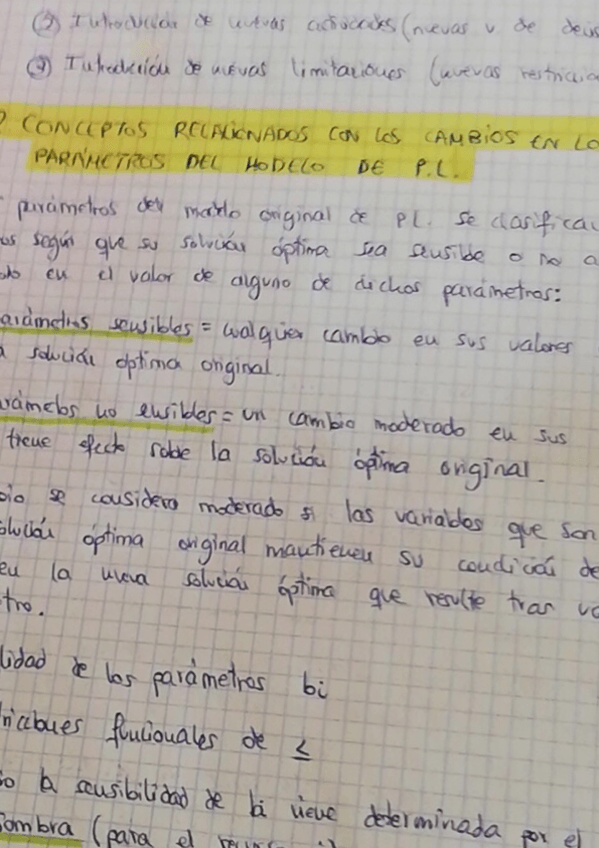 ② Introducción de nuevas actividades (nuevas v de decis
③ Introducción de nuevas limitaciones (nuevas restriccion
CONCEPTOS RELACIONADOS CON LOS CAMBIOS EN LO
PARÁMETROS DEL MODELO DE P.L.
parámetros del modelo original de PL. se clasifican
os según que su solución óptima sea sensible o no a
do en el valor de alguno de dichos parámetros:
arámetros sensibles = cualquier cambio en sus valores
a solución óptima original.
rámetros no ensibles = un cambio moderado en sus
tiene efecto sobre la solución óptima original.
bio se considera moderado si las variables que son
olución óptima original mantienen su condición de
en la nueva solución óptima que resulte tras va
tro.
lidad de los parámetros bi
ricciones funcionales de ≤
so la sensibilidad de bi viene determinada por el
sombra (para el